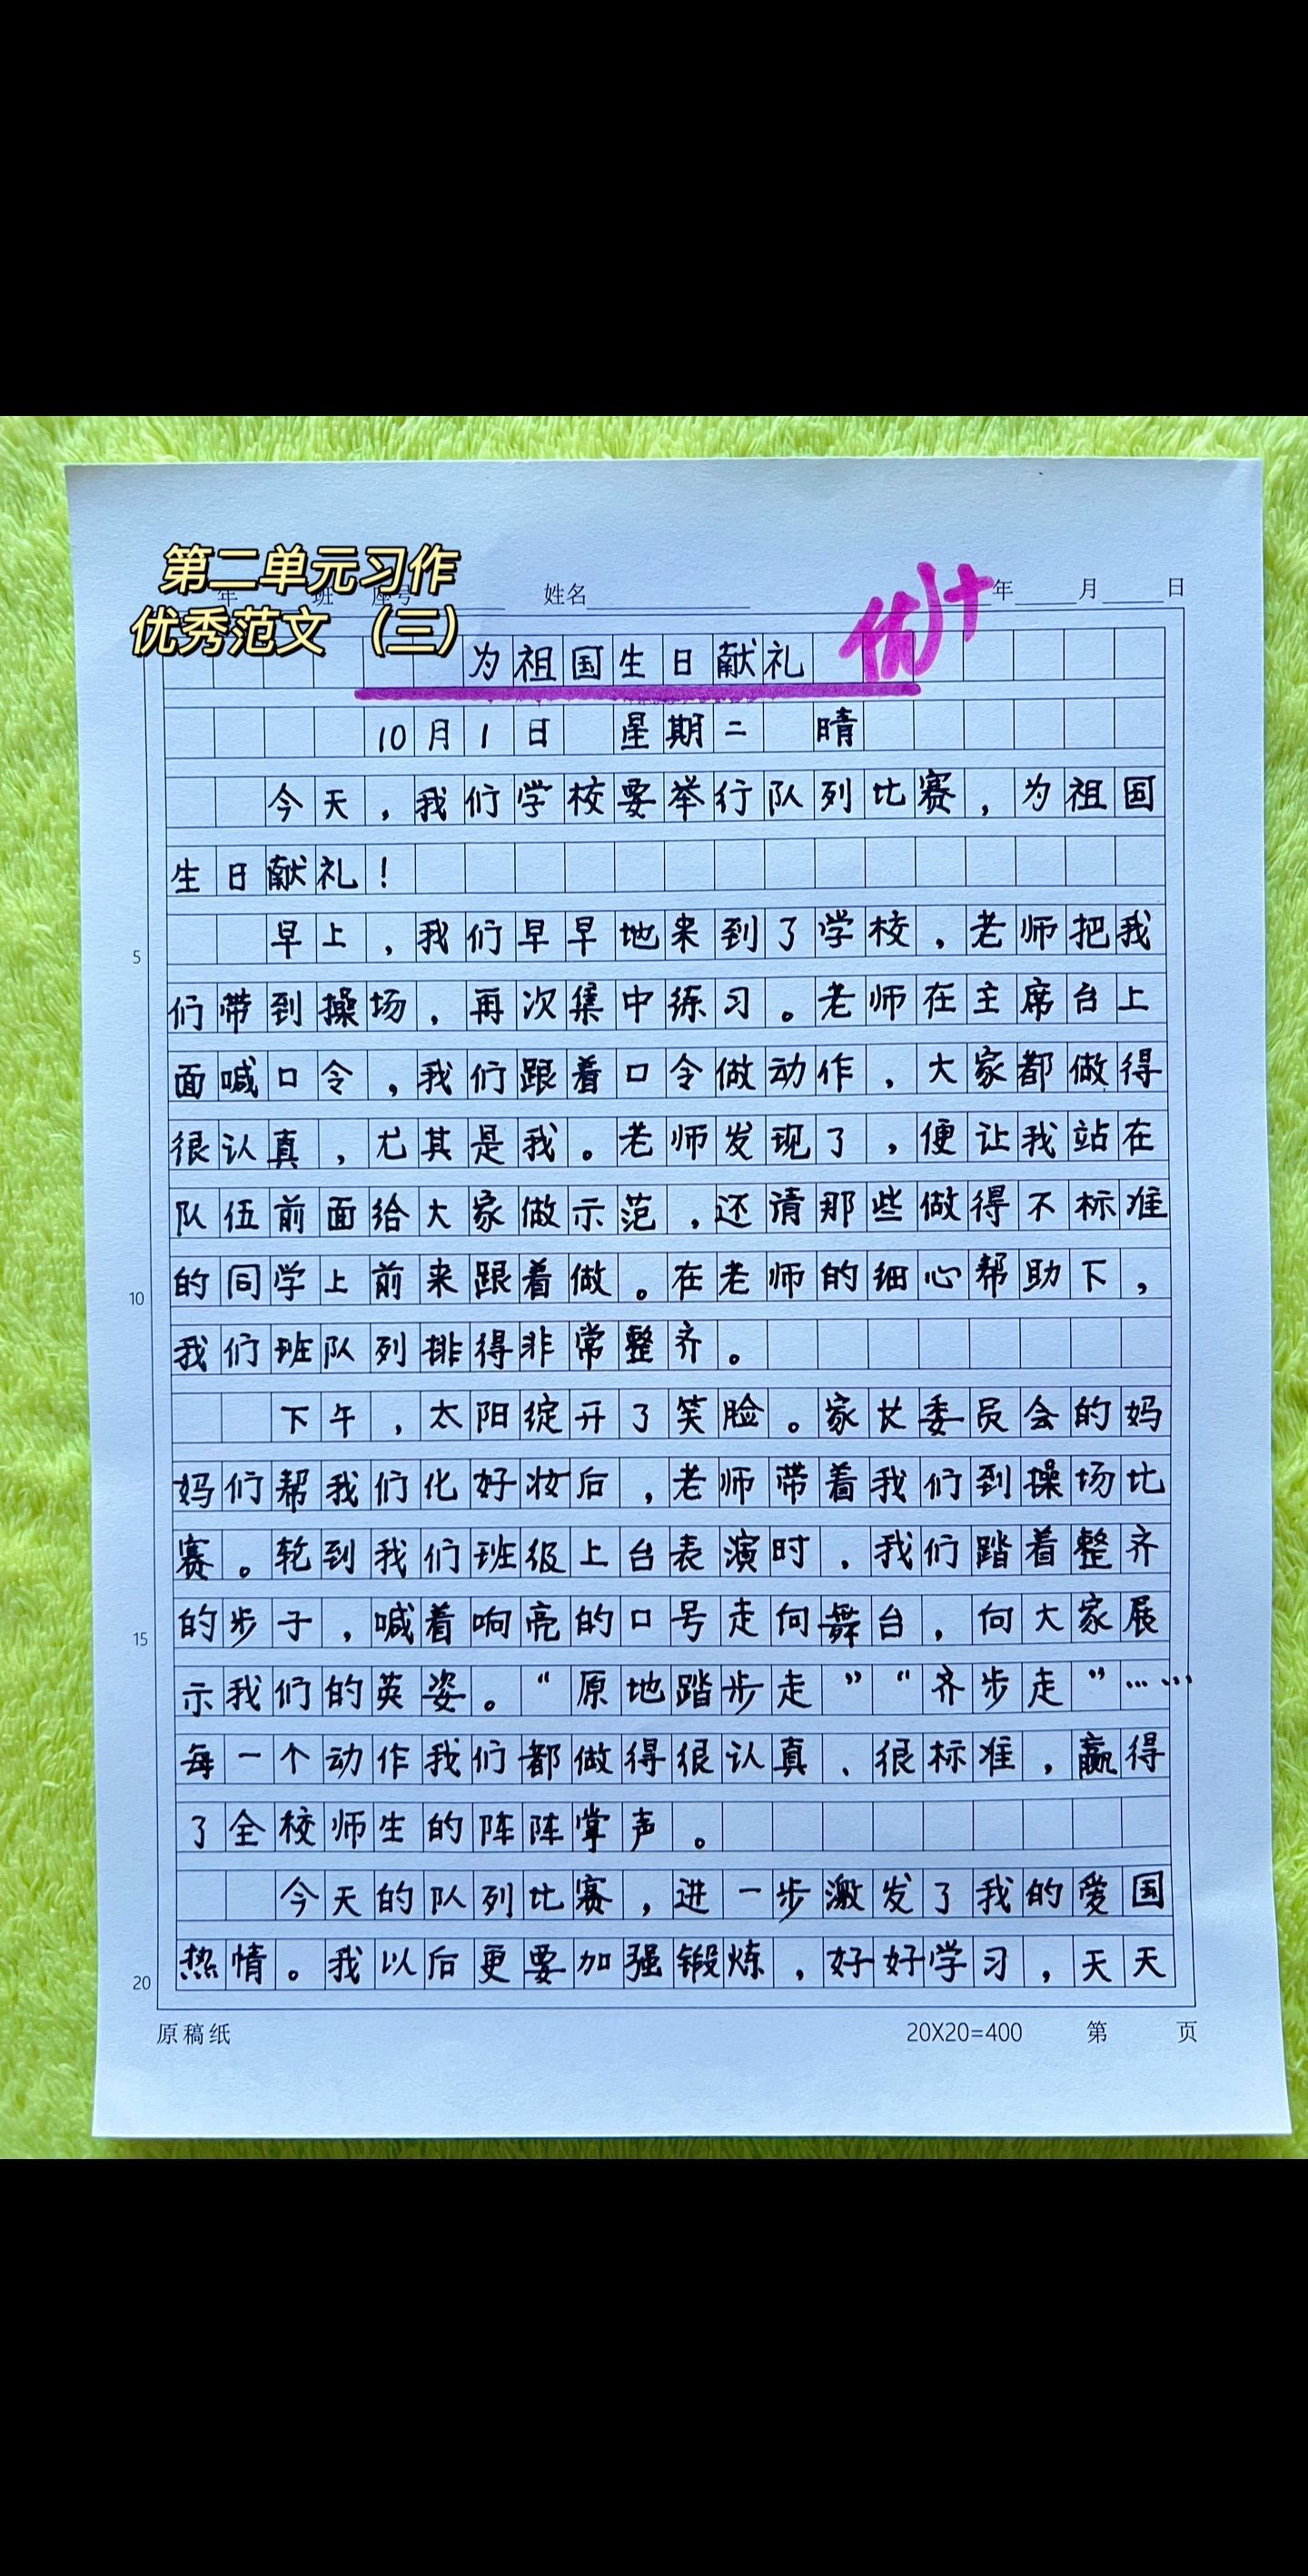 第二单元习作
优秀范文（三）
年 班 座号 姓名 年 月 日
优+
为祖国生日献礼
10月1日 星期二 晴
今天，我们学校要举行队列比赛，为祖国
生日献礼！
早上，我们早早地来到了学校，老师把我
5
们带到操场，再次集中练习。老师在主席台上
面喊口令，我们跟着口令做动作，大家都做得
很认真，尤其是我。老师发现了，便让我站在
队伍前面给大家做示范，还请那些做得不标准
的同学上前来跟着做。在老师的细心帮助下，
10
我们班队列排得非常整齐。
下午，太阳绽开了笑脸。家长委员会的妈
妈们帮我们化好妆后，老师带着我们到操场比
赛。轮到我们班级上台表演时，我们踏着整齐
的步子，喊着响亮的口号走向舞台，向大家展
15
示我们的英姿。“原地踏步走”“齐步走”……
每一个动作我们都做得很认真、很标准，赢得
了全校师生的阵阵掌声。
今天的队列比赛，进一步激发了我的爱国
热情。我以后更要加强锻炼，好好学习，天天
20
原稿纸 20X20=400 第 页